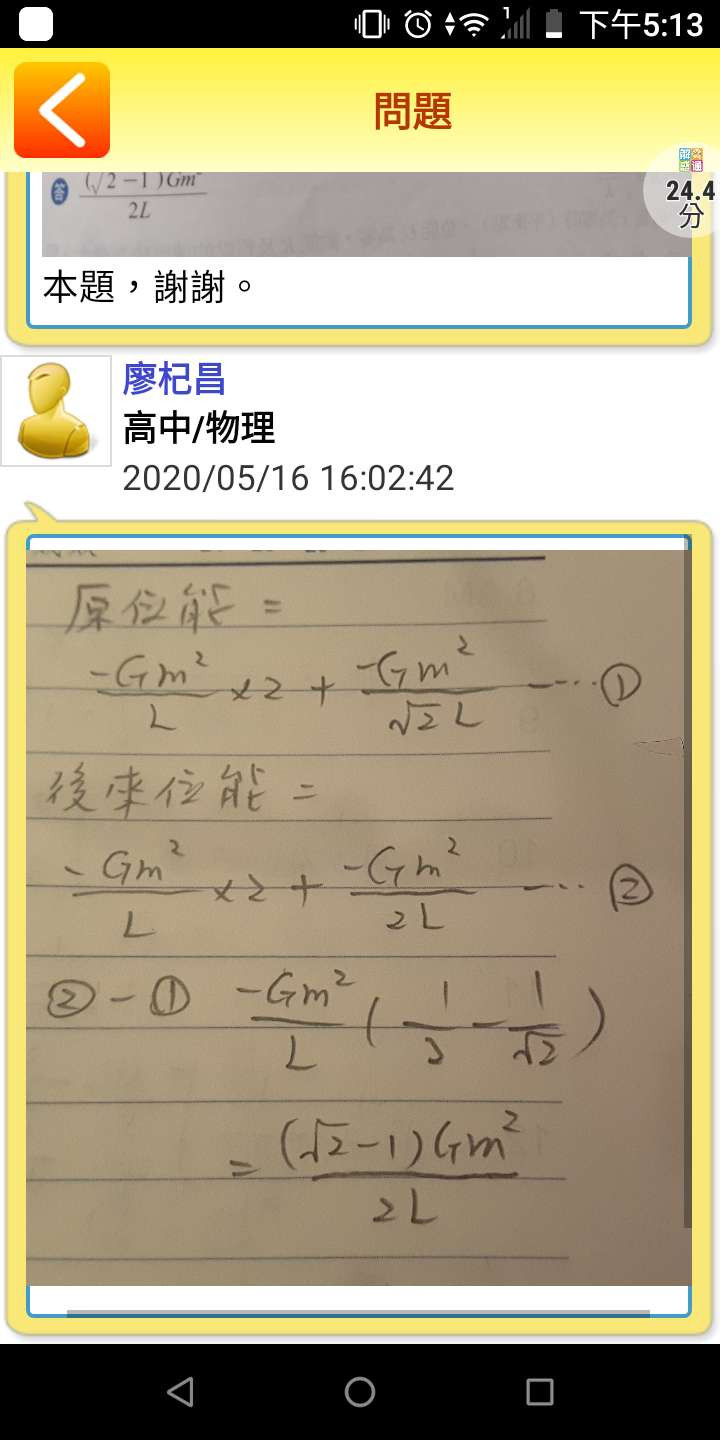 下午5:13
問題
24.4
分
答 (√2-1)Gm²/2L
本題，謝謝。
廖杞昌
高中/物理
2020/05/16 16:02:42
原位能 =
-Gm²/L ×2 + -Gm²/√2 L ---- ①
後來位能 =
-Gm²/L ×2 + -Gm²/2L ---- ②
② - ① -Gm²/L (1/2 - 1/√2)
= (√2-1)Gm²/2L